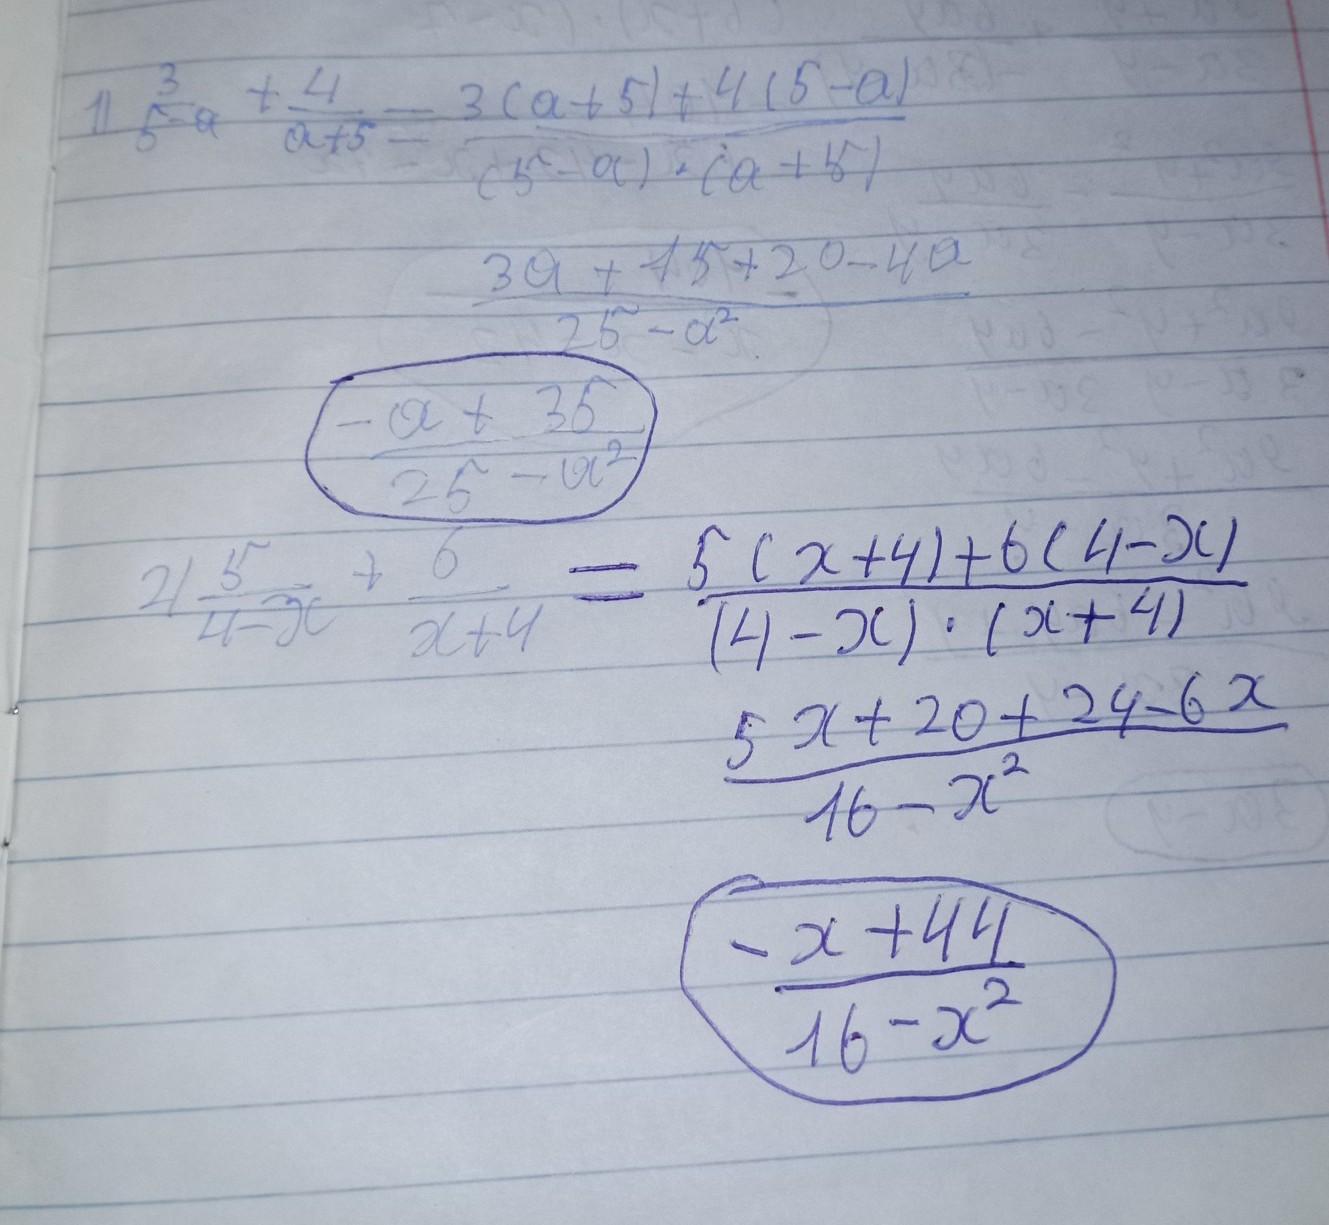 1) 3/(5-a) + 4/(a+5) = (3(a+5)+4(5-a))/((5-a)·(a+5))
(3a+15+20-4a)/(25-a²)
(-a+35)/(25-a²)
2) 5/(4-x) + 6/(x+4) = (5(x+4)+6(4-x))/((4-x)·(x+4))
(5x+20+24-6x)/(16-x²)
(-x+44)/(16-x²)